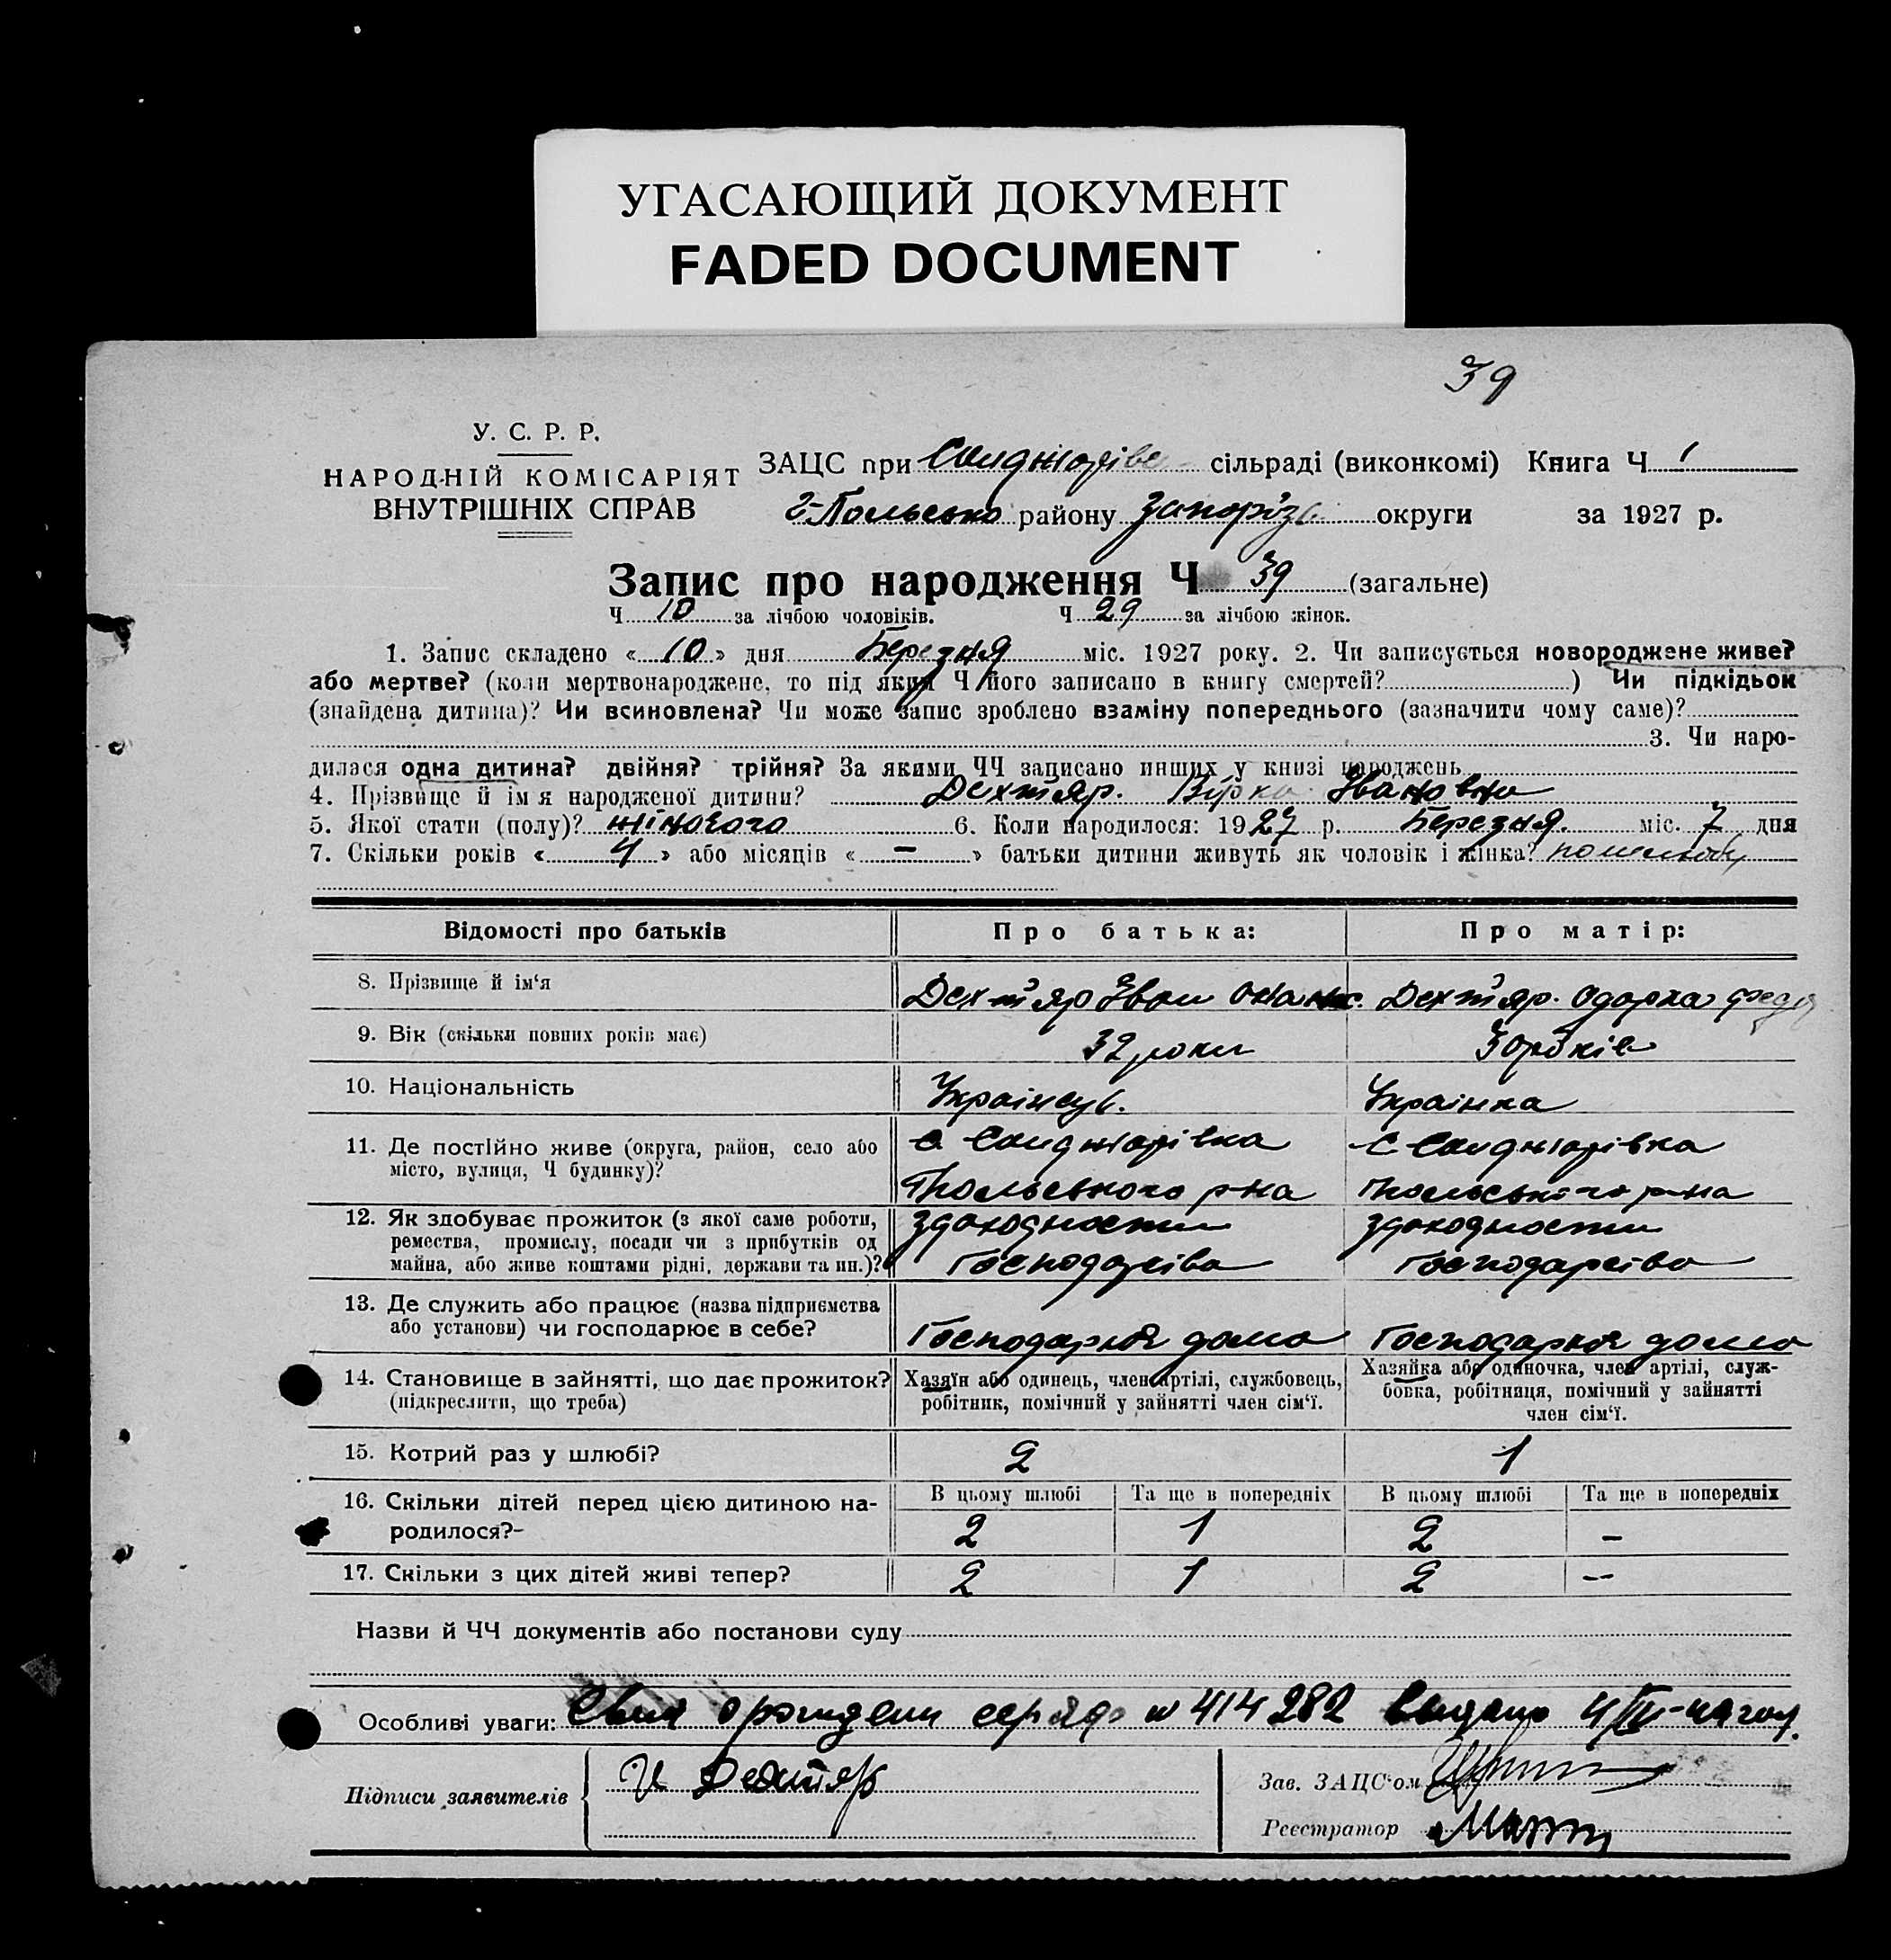 УГАСАЮЩИЙ ДОКУМЕНТ
FADED DOCUMENT
39
У. С. Р. Р.
НАРОДНІЙ КОМІСАРІЯТ
ВНУТРІШНІХ СПРАВ
ЗАЦС при сільраді (виконкомі) Книга Ч 1
Г-Польсько району Запорізь округи за 1927 р.
Запис про народження Ч 39 (загальне)
Ч 10 за лічбою чоловіків. Ч 29 за лічбою жінок.
1. Запис складено « 10 » дня Березня міс. 1927 року. 2. Чи записується новороджене живе?
або мертве? (коли мертвонароджене, то під яким Ч його записано в книгу смертей? ) Чи підкідьок
(знайдена дитина)? Чи всиновлена? Чи може запис зроблено взаміну попереднього (зазначити чому саме)?
3. Чи наро-
дилася одна дитина? двійня? трійня? За якими ЧЧ записано инших у книзі народжень
4. Прізвище й імя народженої дитини? Дехтяр. Вірка Івановна
5. Якої стати (полу)? жіночого 6. Коли народилося: 1927 р. Березня. міс. 7 дня
7. Скільки років « 4 » або місяців « — » батьки дитини живуть як чоловік і жінка? по шлюбу
Відомості про батьків Про батька: Про матір:
8. Прізвище й ім'я Дехтяр Іван Дехтяр. Одарка
9. Вік (скільки повних років має) 32 роки 30 років
10. Національність Українець. Українка
11. Де постійно живе (округа, район, село або місто, вулиця, Ч будинку)? с Санджарівка с Санджарівка
Гпольського р-на Гпольського р-на
12. Як здобуває прожиток (з якої саме роботи, здоходности здоходности
ремества, промислу, посади чи з прибутків од
майна, або живе коштами рідні, держави та ин.)? Господарства Господарства
13. Де служить або працює (назва підприємства
або установи) чи господарює в себе? Господарня дома Господарня дома
14. Становище в зайнятті, що дає прожиток? Хазяїн або одинець, член артілі, службовець, Хазяйка або одиночка, член артілі, служ-
(підкреслити, що треба) робітник, помічний у зайнятті член сім'ї. бовка, робітниця, помічний у зайнятті
член сім'ї.
15. Котрий раз у шлюбі? 2 1
16. Скільки дітей перед цією дитиною на- В цьому шлюбі Та ще в попередніх В цьому шлюбі Та ще в попередніх
родилося?- 2 1 2 —
17. Скільки з цих дітей живі тепер? 2 1 2 —
Назви й ЧЧ документів або постанови суду
Особливі уваги: N 414282 выдано
Підписи заявителів И Дехтяр Зав. ЗАЦС'ом
Реєстратор